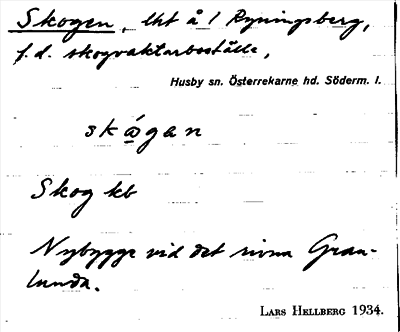 Skogen, lht å 1 Ryningsberg,
f.d. skogvaktarboställe,
Husby sn. Österrekarne hd. Söderm. l.
skågan
Skog kb
Nybygge vid det rivna Gran-
lunda.
LARS HELLBERG 1934.